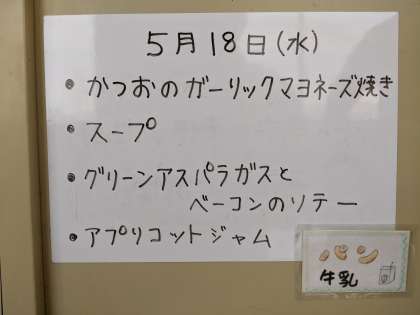 5月18日(水)
• かつおのガーリックマヨネーズ焼き
• スープ
• グリーンアスパラガスと
ベーコンのソテー
• アプリコットジャム
パン
牛乳